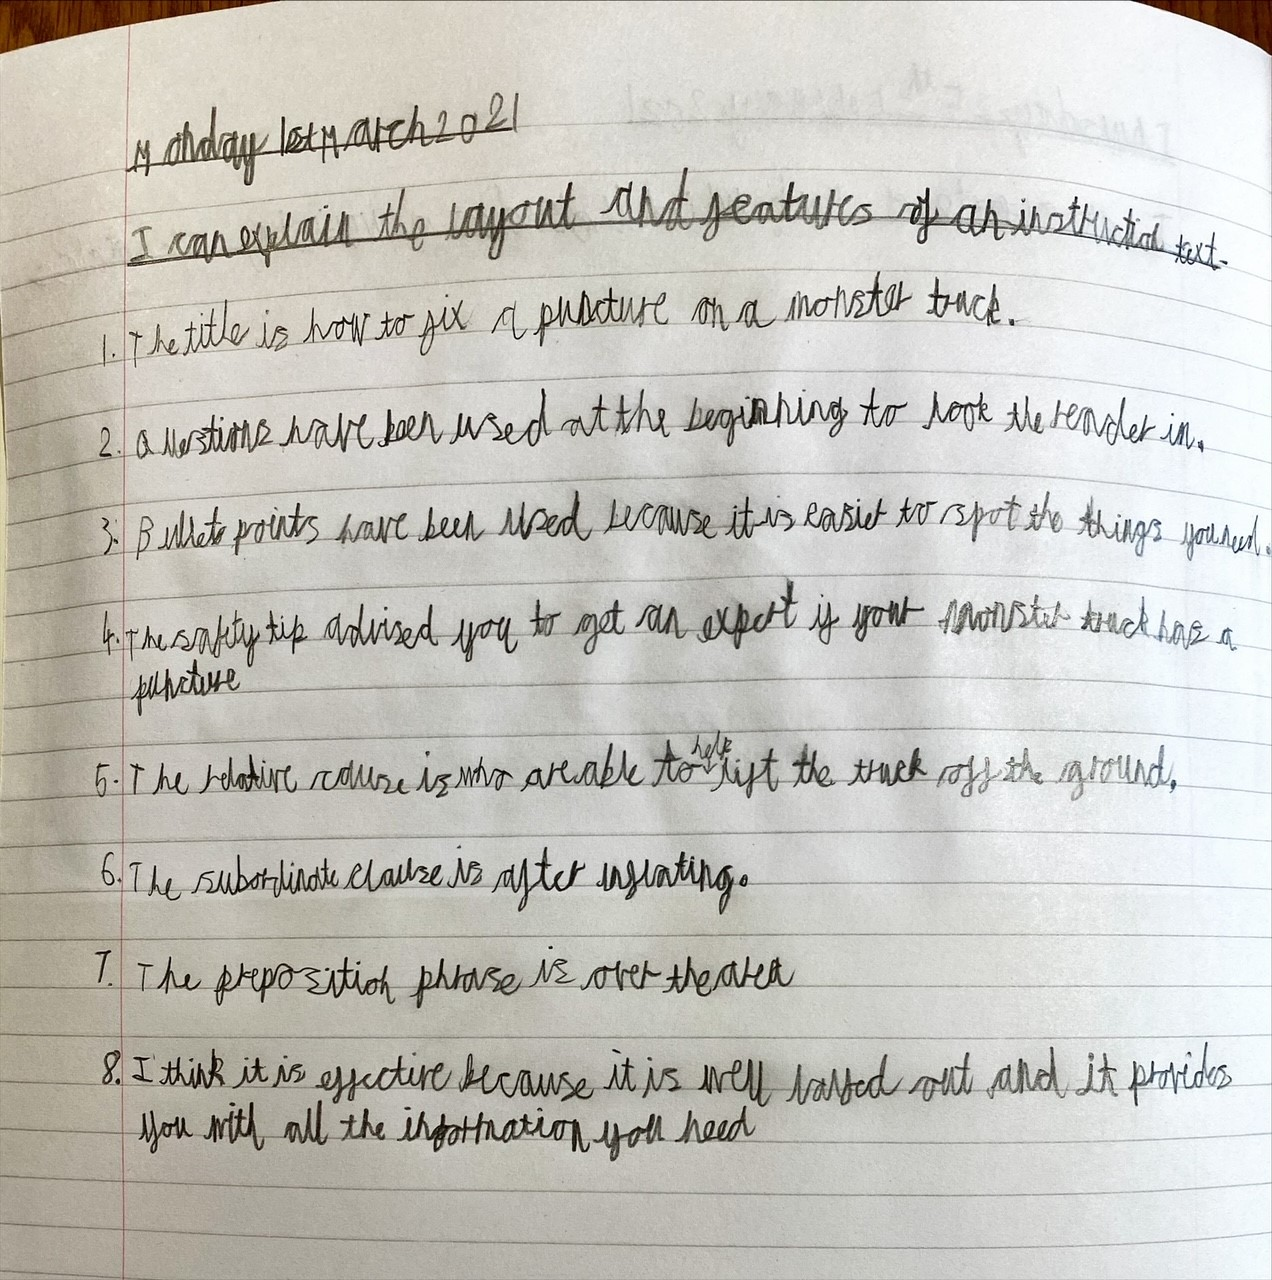 Monday 1st March 2021
I can explain the layout and features of an instruction text.
1. The title is how to fix a puncture on a monster truck.
2. Questions have been used at the beginning to hook the reader in.
3. Bullet points have been used because it is easier to spot the things you need.
4. The safety tip advised you to get an expert if your monster truck has a
puncture
5. The relative cause is who are able to help lift the truck off the ground.
6. The subordinate clause is after inflating.
7. The preposition phrase is over the area
8. I think it is effective because it is well out and it provides
you with all the information you need